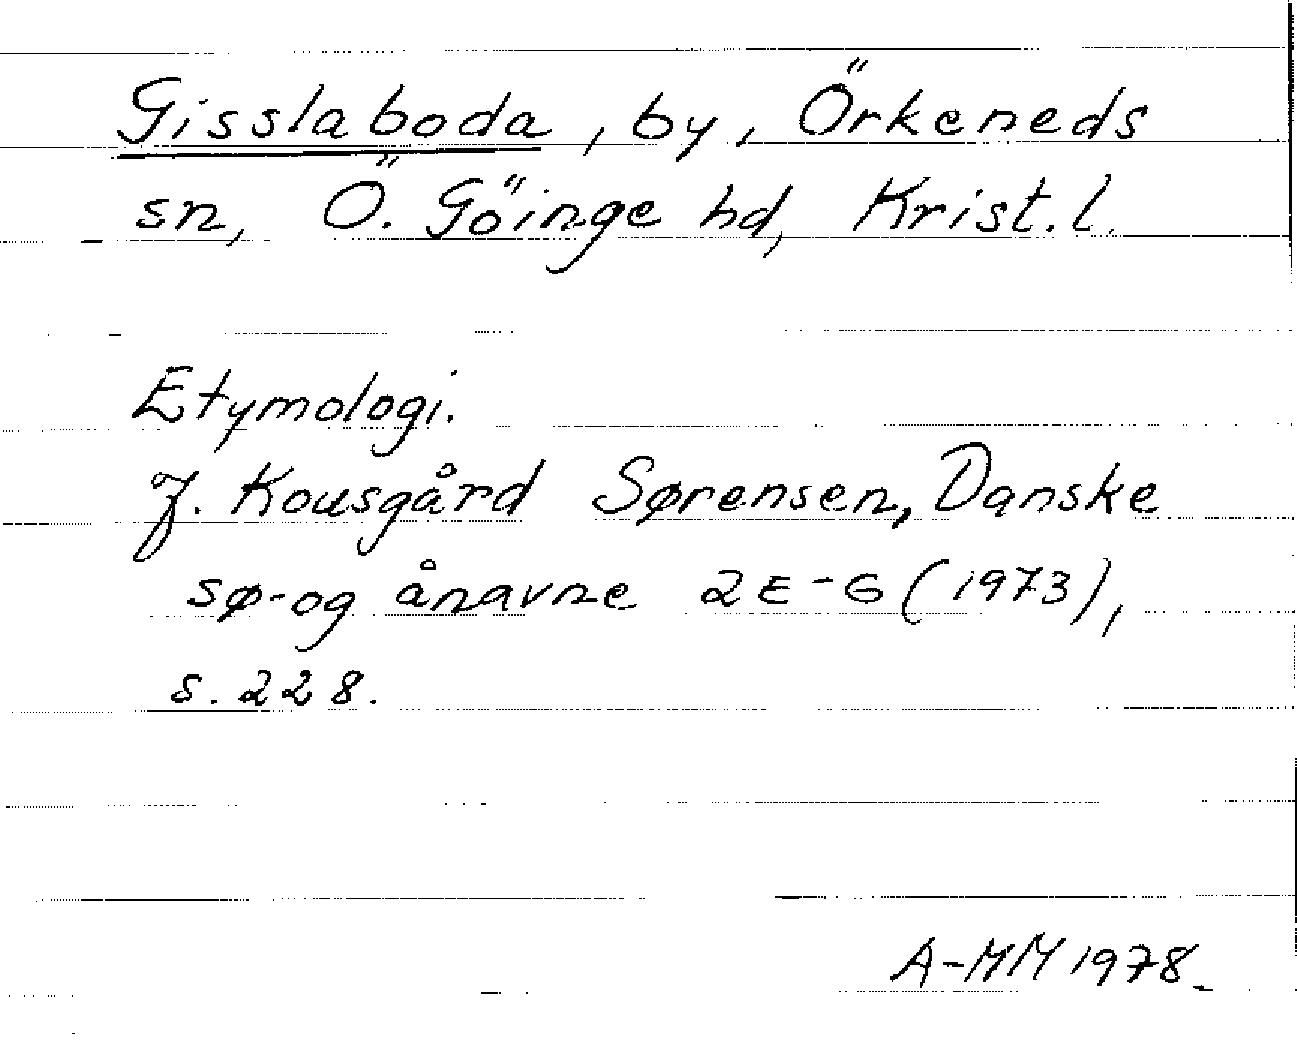 Gisslaboda, by, Örkeneds
sn, Ö. Göinge hd, Krist. l.
Etymologi.
J. Kousgård Sørensen, Danske
sø- og ånavne 2 E-G (1973),
s. 228.
A-MM 1978